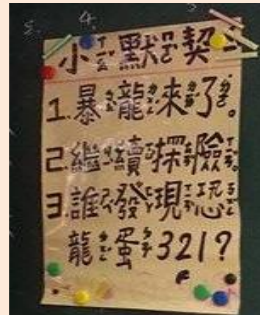 小默契
1.暴龍來了。
2.繼續探險。
3.誰發現恐
龍蛋321?